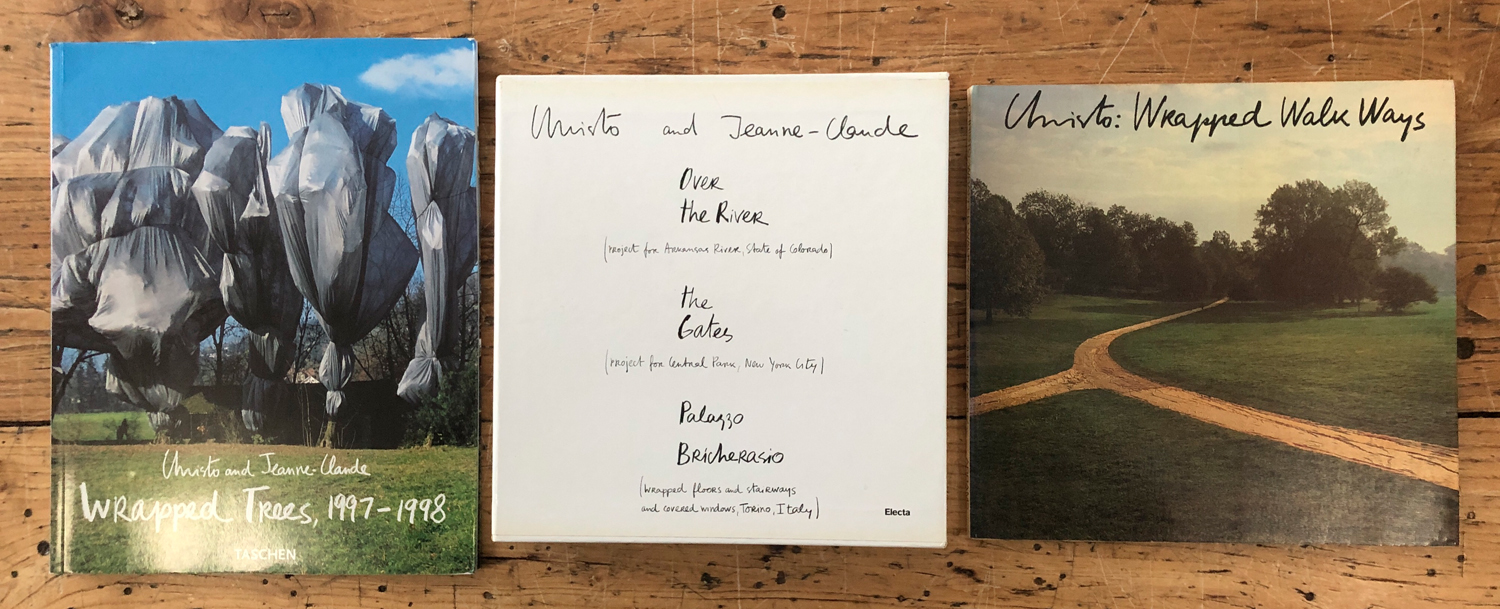 Christo and Jeanne-Claude
Wrapped Trees, 1997-1998
TASCHEN
Christo and Jeanne-Claude
Over
the River
(project for Arkansas River, State of Colorado)
the
Gates
(project for Central Park, New York City)
Palazzo
Bricherasio
(wrapped floors and stairways
and covered windows, Torino, Italy)
Electa
Christo: Wrapped Walk Ways